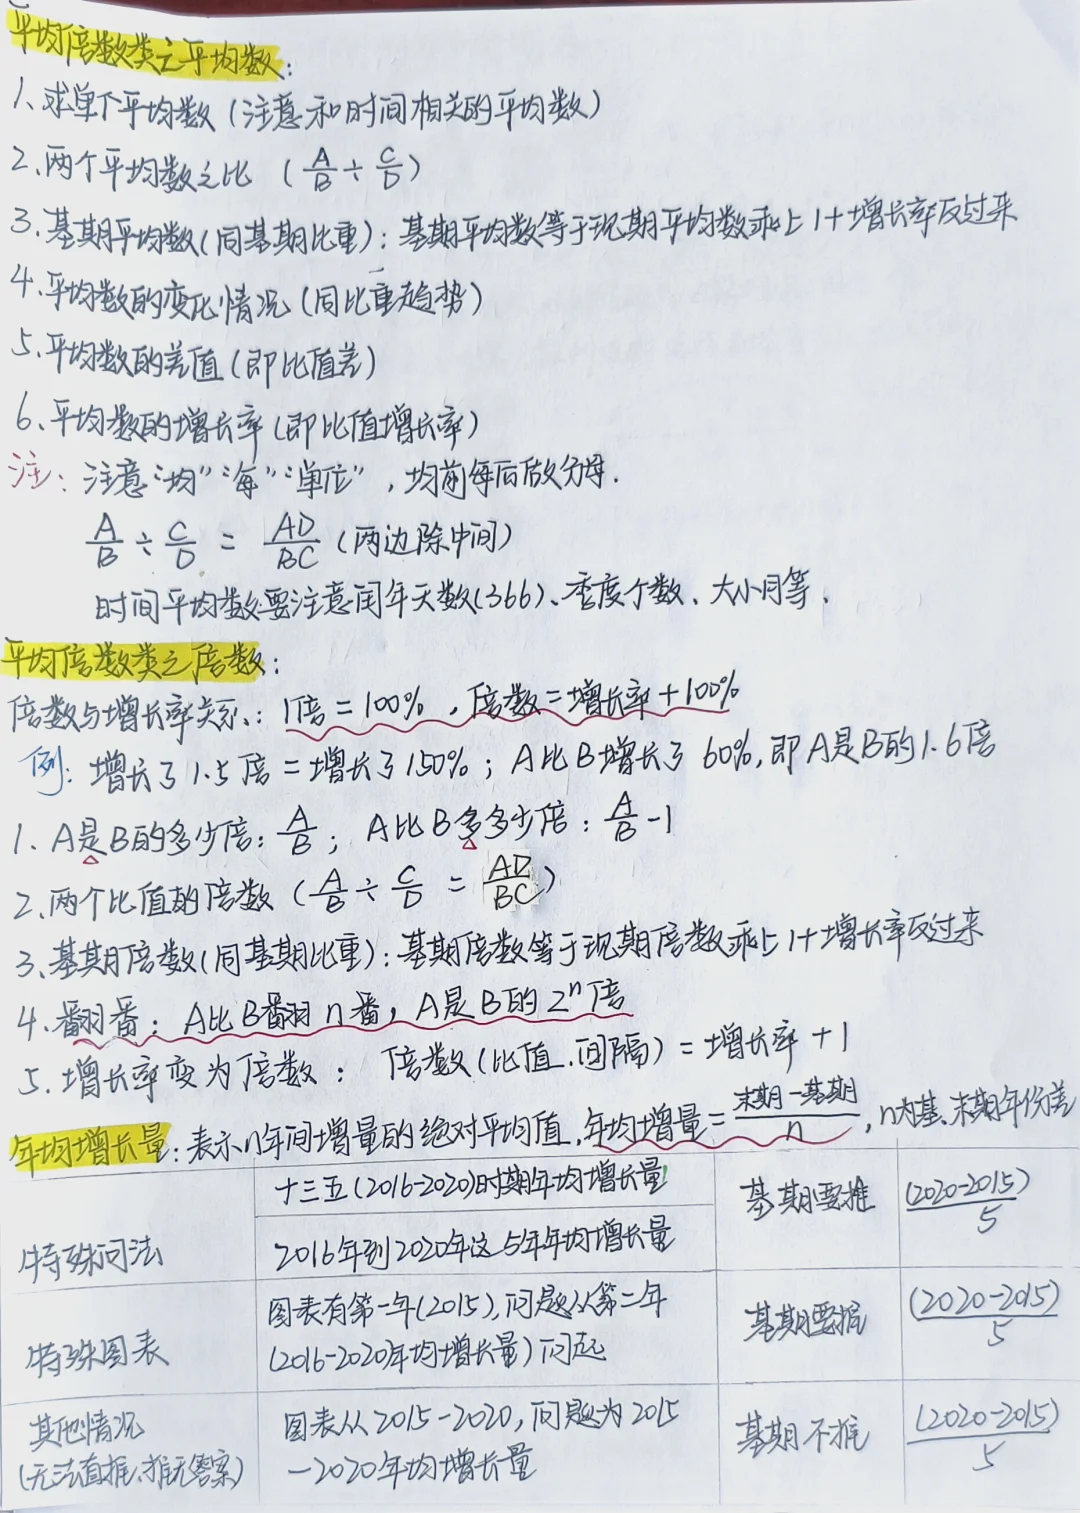 平均倍数类之平均数：
1、求单个平均数（注意和时间相关的平均数）
2、两个平均数之比（A/B ÷ C/D）
3、基期平均数（同基期比重）：基期平均数等于现期平均数乘上1+增长率反过来
4、平均数的变化情况（同比重趋势）
5、平均数的差值（即比值差）
6、平均数的增长率（即比值增长率）
注：注意“均”“每”“单位”，均前每后做分母.
A/B ÷ C/D = AD/BC（两边除中间）
时间平均数要注意闰年天数（366）、季度个数、大小月等.
平均倍数类之倍数：
倍数与增长率关系：1倍=100%，倍数=增长率+100%
例：增长了1.5倍=增长了150%；A比B增长了60%，即A是B的1.6倍
1、A是B的多少倍：A/B；A比B多多少倍：A/B-1
2、两个比值的倍数（A/B ÷ C/D = AD/BC）
3、基期倍数（同基期比重）：基期倍数等于现期倍数乘上1+增长率反过来
4、翻番：A比B翻n番，A是B的2ⁿ倍
5、增长率变为倍数：倍数（比值、间隔）=增长率+1
年均增长量：表示n年间增量的绝对平均值，年均增量=末期-基期/n，n为基、末期年份差
特殊问法
十三五（2016-2020）时期年均增长量
2016年到2020年这5年年均增长量
基期要推
(2020-2015)/5
特殊图表
图表有第一年（2015），问题从第二年
（2016-2020年均增长量）问起
基期要推
(2020-2015)/5
其他情况
（无法直推、推无答案）
图表从2015-2020，问题为2015
-2020年均增长量
基期不推
(2020-2015)/5